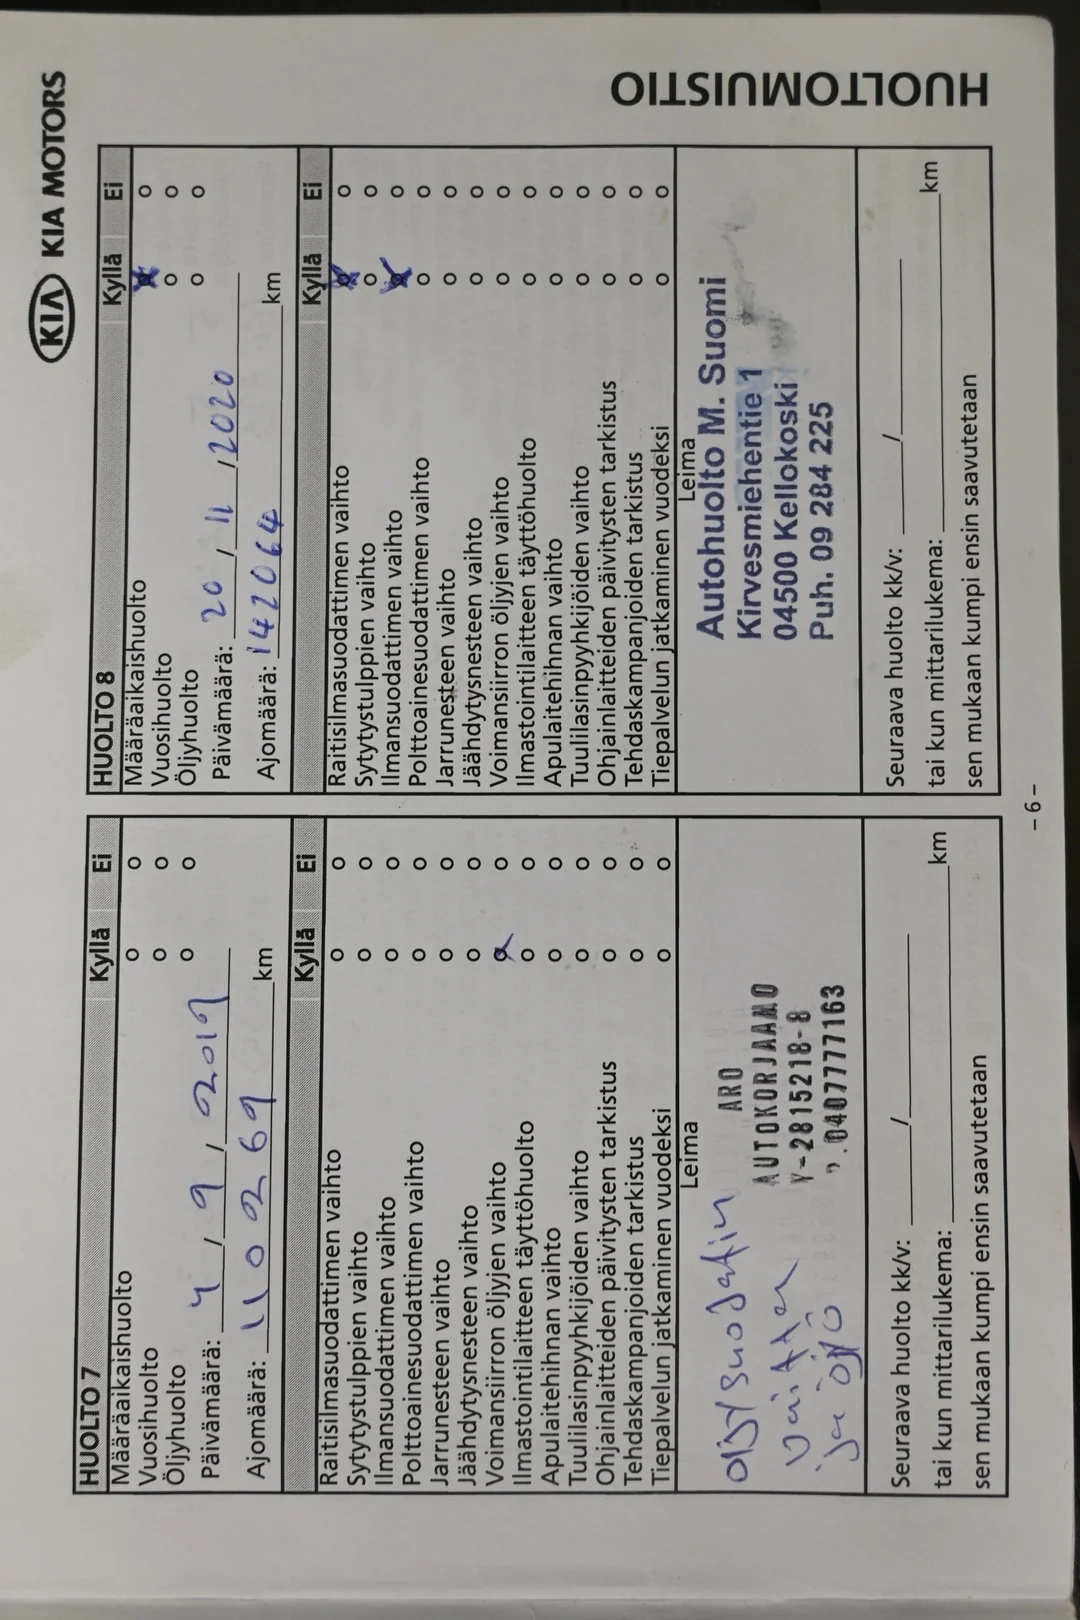 KIA KIA MOTORS
HUOLTOMUISTIO
HUOLTO 7 Kyllä Ei
Määräaikaishuolto o o
Vuosihuolto o o
Öljyhuolto o o
Päivämäärä: 4 / 9 / 2019
Ajomäärä: 110269 km
Kyllä Ei
Raitisilmasuodattimen vaihto o o
Sytytystulppien vaihto o o
Ilmansuodattimen vaihto o o
Polttoainesuodattimen vaihto o o
Jarrunesteen vaihto o o
Jäähdytysnesteen vaihto o o
Voimansiirron öljyjen vaihto o o
Ilmastointilaitteen täyttöhuolto o o
Apulaitehihnan vaihto o o
Tuulilasinpyyhkijöiden vaihto o o
Ohjainlaitteiden päivitysten tarkistus o o
Tehdaskampanjoiden tarkistus o o
Tiepalvelun jatkaminen vuodeksi o o
Leima
ARO
AUTOKORJAAMO
Y-2815218-8
0407777163
ja öljy
Seuraava huolto kk/v: /
tai kun mittarilukema: km
sen mukaan kumpi ensin saavutetaan
HUOLTO 8 Kyllä Ei
Määräaikaishuolto x o
Vuosihuolto o o
Öljyhuolto o o
Päivämäärä: 20 / 11 / 2020
Ajomäärä: 142064 km
Kyllä Ei
Raitisilmasuodattimen vaihto x o
Sytytystulppien vaihto o o
Ilmansuodattimen vaihto x o
Polttoainesuodattimen vaihto o o
Jarrunesteen vaihto o o
Jäähdytysnesteen vaihto o o
Voimansiirron öljyjen vaihto o o
Ilmastointilaitteen täyttöhuolto o o
Apulaitehihnan vaihto o o
Tuulilasinpyyhkijöiden vaihto o o
Ohjainlaitteiden päivitysten tarkistus o o
Tehdaskampanjoiden tarkistus o o
Tiepalvelun jatkaminen vuodeksi o o
Leima
Autohuolto M. Suomi
Kirvesmiehentie 1
04500 Kellokoski
Puh. 09 284 225
Seuraava huolto kk/v: /
tai kun mittarilukema: km
sen mukaan kumpi ensin saavutetaan
- 6 -